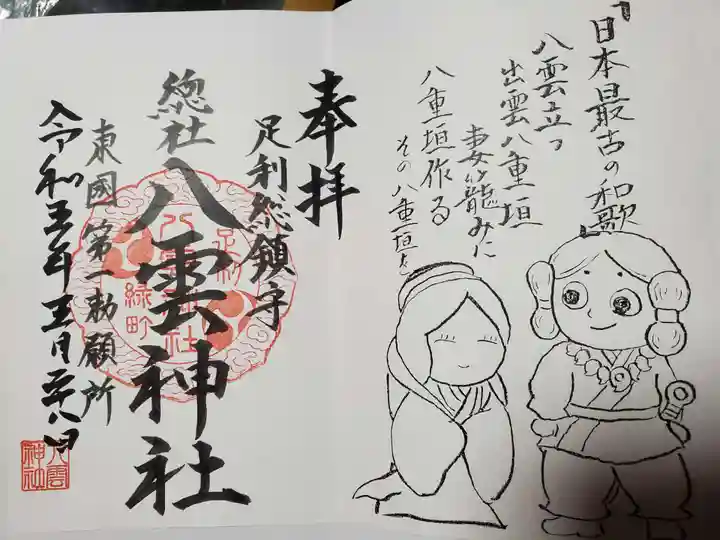 「日本最古の和歌」
八雲立つ
出雲八重垣
妻籠みに
八重垣作る
その八重垣を
奉拝
足利総鎮守
總社
八雲神社
東國第一勅願所
令和五年五月廿八日
足利
八雲神社
緑町
八雲神社